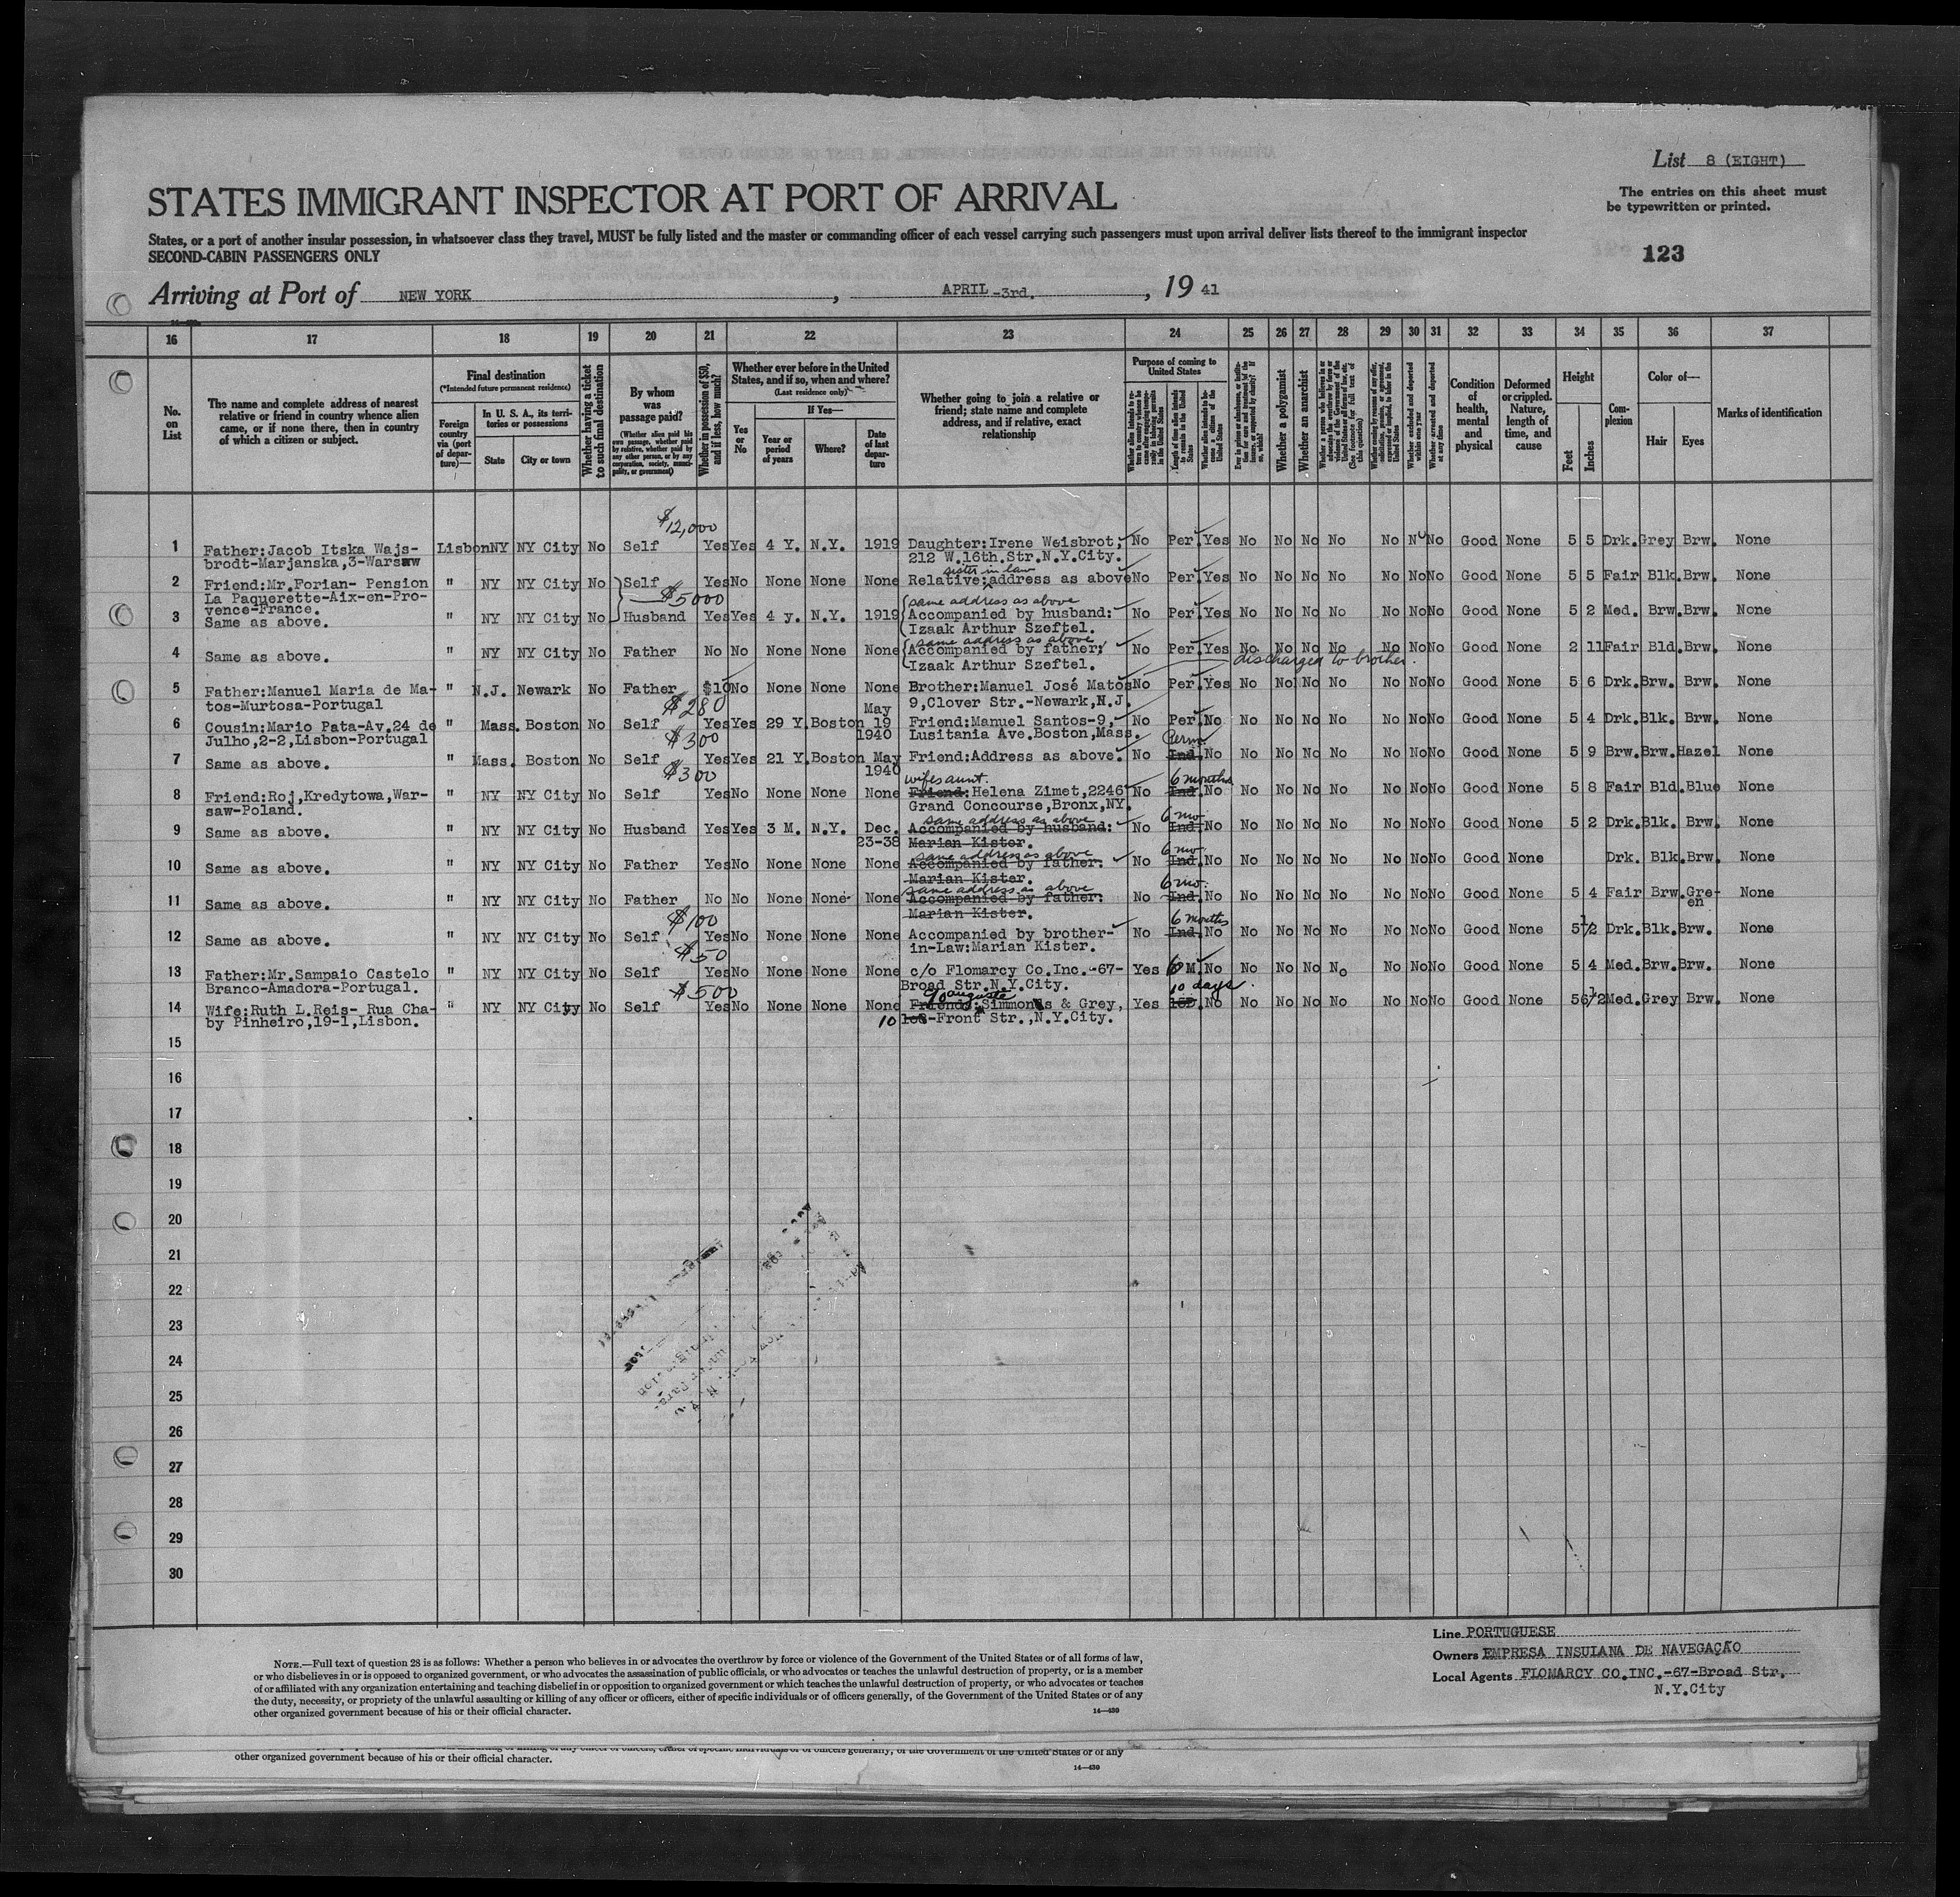 List 8 (EIGHT)
STATES IMMIGRANT INSPECTOR AT PORT OF ARRIVAL
The entries on this sheet must
be typewritten or printed.
States, or a port of another insular possession, in whatsoever class they travel, MUST be fully listed and the master or commanding officer of each vessel carrying such passengers must upon arrival deliver lists thereof to the immigrant inspector
SECOND-CABIN PASSENGERS ONLY
123
Arriving at Port of NEW YORK, APRIL -3rd., 19 41
16 17 18 19 20 21 22 23 24 25 26 27 28 29 30 31 32 33 34 35 36 37
No. on List
The name and complete address of nearest
relative or friend in country whence alien
came, or if none there, then in country
of which a citizen or subject.
Final destination
(*Intended future permanent residence)
Foreign country via (port of departure)—
In U. S. A., its territories or possessions
State
City or town
Whether having a ticket to such final destination
By whom was passage paid?
(Whether alien paid his own passage, whether paid by relative, whether paid by any other person, or by any corporation, society, municipality, or government)
Whether in possession of $50, and if less, how much?
Whether ever before in the United
States, and if so, when and where?
(Last residence only)
If Yes—
Yes or No
Year or period of years
Where?
Date of last departure
Whether going to join a relative or
friend; state name and complete
address, and if relative, exact
relationship
Purpose of coming to United States
Length of time alien intends to remain in the United States
Whether a polygamist
Whether an anarchist
Whether arrested and deported at any time
Condition of health, mental and physical
Deformed or crippled. Nature, length of time, and cause
Height
Feet
Inches
Complexion
Color of—
Hair
Eyes
Marks of identification
$12,000
1 Father:Jacob Itska Wajs- Lisbon NY NY City No Self Yes Yes 4 Y. N.Y. 1919 Daughter:Irene Weisbrot; No Per. Yes No No No No No No No Good None 5 5 Drk. Grey Brw. None
brodt-Marjanska,3-Warsaw 212 W.16th.Str.N.Y.City.
sister in law
2 Friend:Mr.Forian- Pension " NY NY City No Self Yes No None None None Relative:address as above No Per. Yes No No No No No No No Good None 5 5 Fair Blk. Brw. None
La Paquerette-Aix-en-Pro- $5000 same address as above
vence-France.
3 Same as above. " NY NY City No Husband Yes Yes 4 y. N.Y. 1919 Accompanied by husband: No Per. Yes No No No No No No No Good None 5 2 Med. Brw. Brw. None
Izaak Arthur Szeftel.
same address as above
4 Same as above. " NY NY City No Father No No None None None Accompanied by father; No Per. Yes No No No No No No No Good None 2 11 Fair Bld. Brw. None
Izaak Arthur Szeftel. discharged to brother.
5 Father:Manuel Maria de Ma- " N.J. Newark No Father $10 No None None None Brother:Manuel José Matos No Per. Yes No No No No No No No Good None 5 6 Drk. Brw. Brw. None
tos-Murtosa-Portugal 9,Clover Str.-Newark,N.J.
$280 May
6 Cousin:Mario Pata-Av.24 de " Mass. Boston No Self Yes Yes 29 Y. Boston 19 Friend:Manuel Santos-9, No Per. No No No No No No No No Good None 5 4 Drk. Blk. Brw. None
Julho,2-2,Lisbon-Portugal 1940 Lusitania Ave.Boston,Mass.
$300 Perm
7 Same as above. " Mass. Boston No Self Yes Yes 21 Y. Boston May Friend:Address as above. No Ind. No No No No No No No No Good None 5 9 Brw. Brw. Hazel None
1940
$300 wifes aunt. 6 months
8 Friend:Roj,Kredytowa,War- " NY NY City No Self Yes No None None None Friend:Helena Zimet,2246 No Ind. No No No No No No No No Good None 5 8 Fair Bld. Blue None
saw-Poland. Grand Concourse,Bronx,NY.
same address as above 6 mo
9 Same as above. " NY NY City No Husband Yes Yes 3 M. N.Y. Dec. Accompanied by husband: No Ind. No No No No No No No No Good None 5 2 Drk. Blk. Brw. None
23-38 Marian Kister.
same address as above 6 mo.
10 Same as above. " NY NY City No Father Yes No None None None Accompanied by father: No Ind. No No No No No No No No Good None Drk. Blk. Brw. None
Marian Kister.
same address as above 6 mo.
11 Same as above. " NY NY City No Father No No None None None Accompanied by father: No Ind. No No No No No No No No Good None 5 4 Fair Brw. Gre- None
Marian Kister. en
$100 6 months
12 Same as above. " NY NY City No Self Yes No None None None Accompanied by brother- No Ind. No No No No No No No No Good None 5 1/2 Drk. Blk. Brw. None
in-Law:Marian Kister.
$50
13 Father:Mr.Sampaio Castelo " NY NY City No Self Yes No None None None c/o Flomarcy Co.Inc.-67- Yes 6 M. No No No No No No No No Good None 5 4 Med. Brw. Brw. None
Branco-Amadora-Portugal. Broad Str.N.Y.City.
$500 10 days.
14 Wife:Ruth L.Reis- Rua Cha- " NY NY City No Self Yes No None None None Friends:Simmonds & Grey, Yes No No No No No No No No Good None 5 6 1/2 Med. Grey Brw. None
by Pinheiro,19-1,Lisbon. 10 108-Front Str.,N.Y.City.
15
16
17
18
19
20
21
22
23
24
25
26
27
28
29
30
Line PORTUGUESE
Owners EMPRESA INSULANA DE NAVEGAÇÃO
Local Agents FLOMARCY CO.INC.-67-Broad Str.
N.Y.City
NOTE.—Full text of question 28 is as follows: Whether a person who believes in or advocates the overthrow by force or violence of the Government of the United States or of all forms of law,
or who disbelieves in or is opposed to organized government, or who advocates the assassination of public officials, or who advocates or teaches the unlawful destruction of property, or is a member
of or affiliated with any organization entertaining and teaching disbelief in or opposition to organized government or which teaches the unlawful destruction of property, or who advocates or teaches
the duty, necessity, or propriety of the unlawful assaulting or killing of any officer or officers, either of specific individuals or of officers generally, of the Government of the United States or of any
other organized government because of his or their official character.
14—430
other organized government because of his or their official character.
14—430